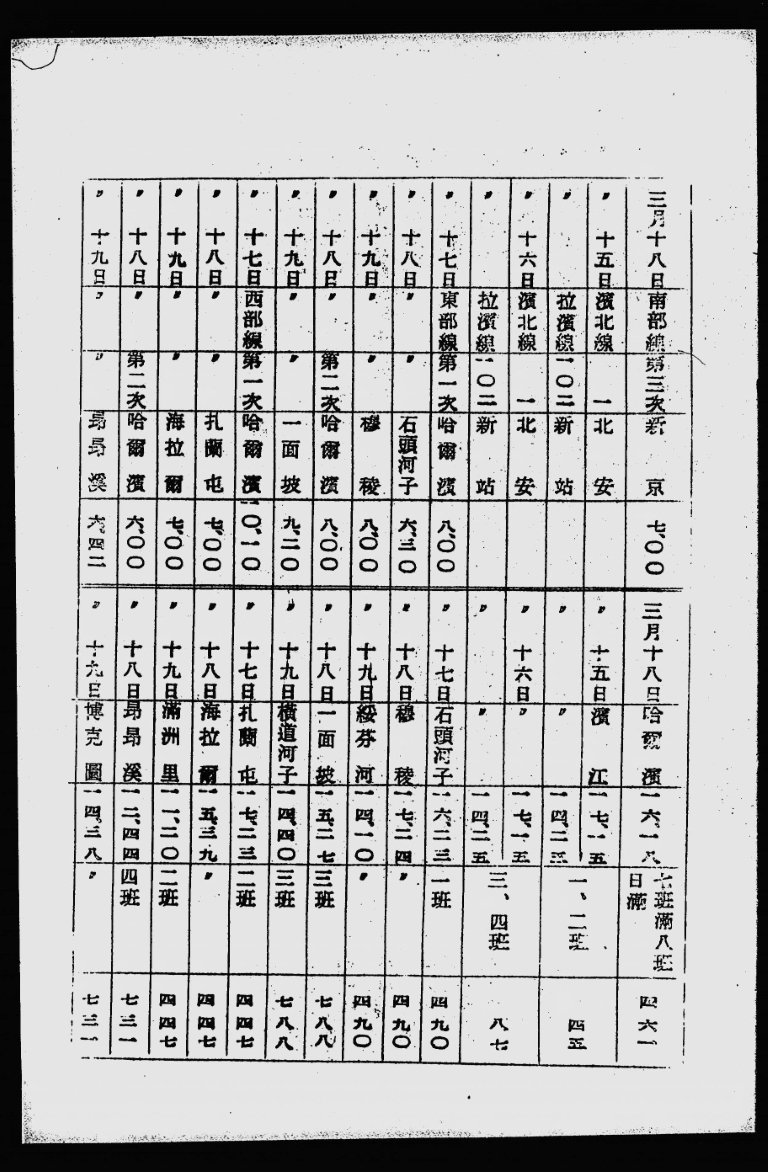 三月十八日 南部線 第三次 新京 七、〇〇 三月十八日 哈爾濱 一六、一八 七班滿八班日滿 四六一
〃 十五日 濱北線 一 北安 〃 十五日 濱江 一七、一五
〃 拉濱線 一〇二 新站 〃 〃 一四、二五 一、二班 四五
〃 十六日 濱北線 一 北安 〃 十六日 〃 一七、一五
〃 拉濱線 一〇二 新站 〃 〃 一四、二五 三、四班 八七
〃 十七日 東部線 第一次 哈爾濱 八、〇〇 〃 十七日 石頭河子 一六、二三 一班 四九〇
〃 十八日 〃 〃 石頭河子 六、三〇 〃 十八日 穆稜 一七、二四 〃 四九〇
〃 十九日 〃 〃 穆稜 八、〇〇 〃 十九日 綏芬河 一四、一〇 〃 四九〇
〃 十八日 〃 第二次 哈爾濱 八、〇〇 〃 十八日 一面坡 一五、二七 三班 七八八
〃 十九日 〃 〃 一面坡 九、二〇 〃 十九日 橫道河子 一四、四〇 三班 七八八
〃 十七日 西部線 第一次 哈爾濱 一〇、一〇 〃 十七日 扎蘭屯 一七、二三 二班 四四七
〃 十八日 〃 〃 扎蘭屯 七、〇〇 〃 十八日 海拉爾 一五、三九 〃 四四七
〃 十九日 〃 〃 海拉爾 七、〇〇 〃 十九日 滿洲里 一一、二〇 二班 四四七
〃 十八日 〃 第二次 哈爾濱 六、〇〇 〃 十八日 昂昂溪 一二、四四 四班 七三一
〃 十九日 〃 〃 昂昂溪 六、四二 〃 十九日 博克圖 一四、三八 〃 七三一